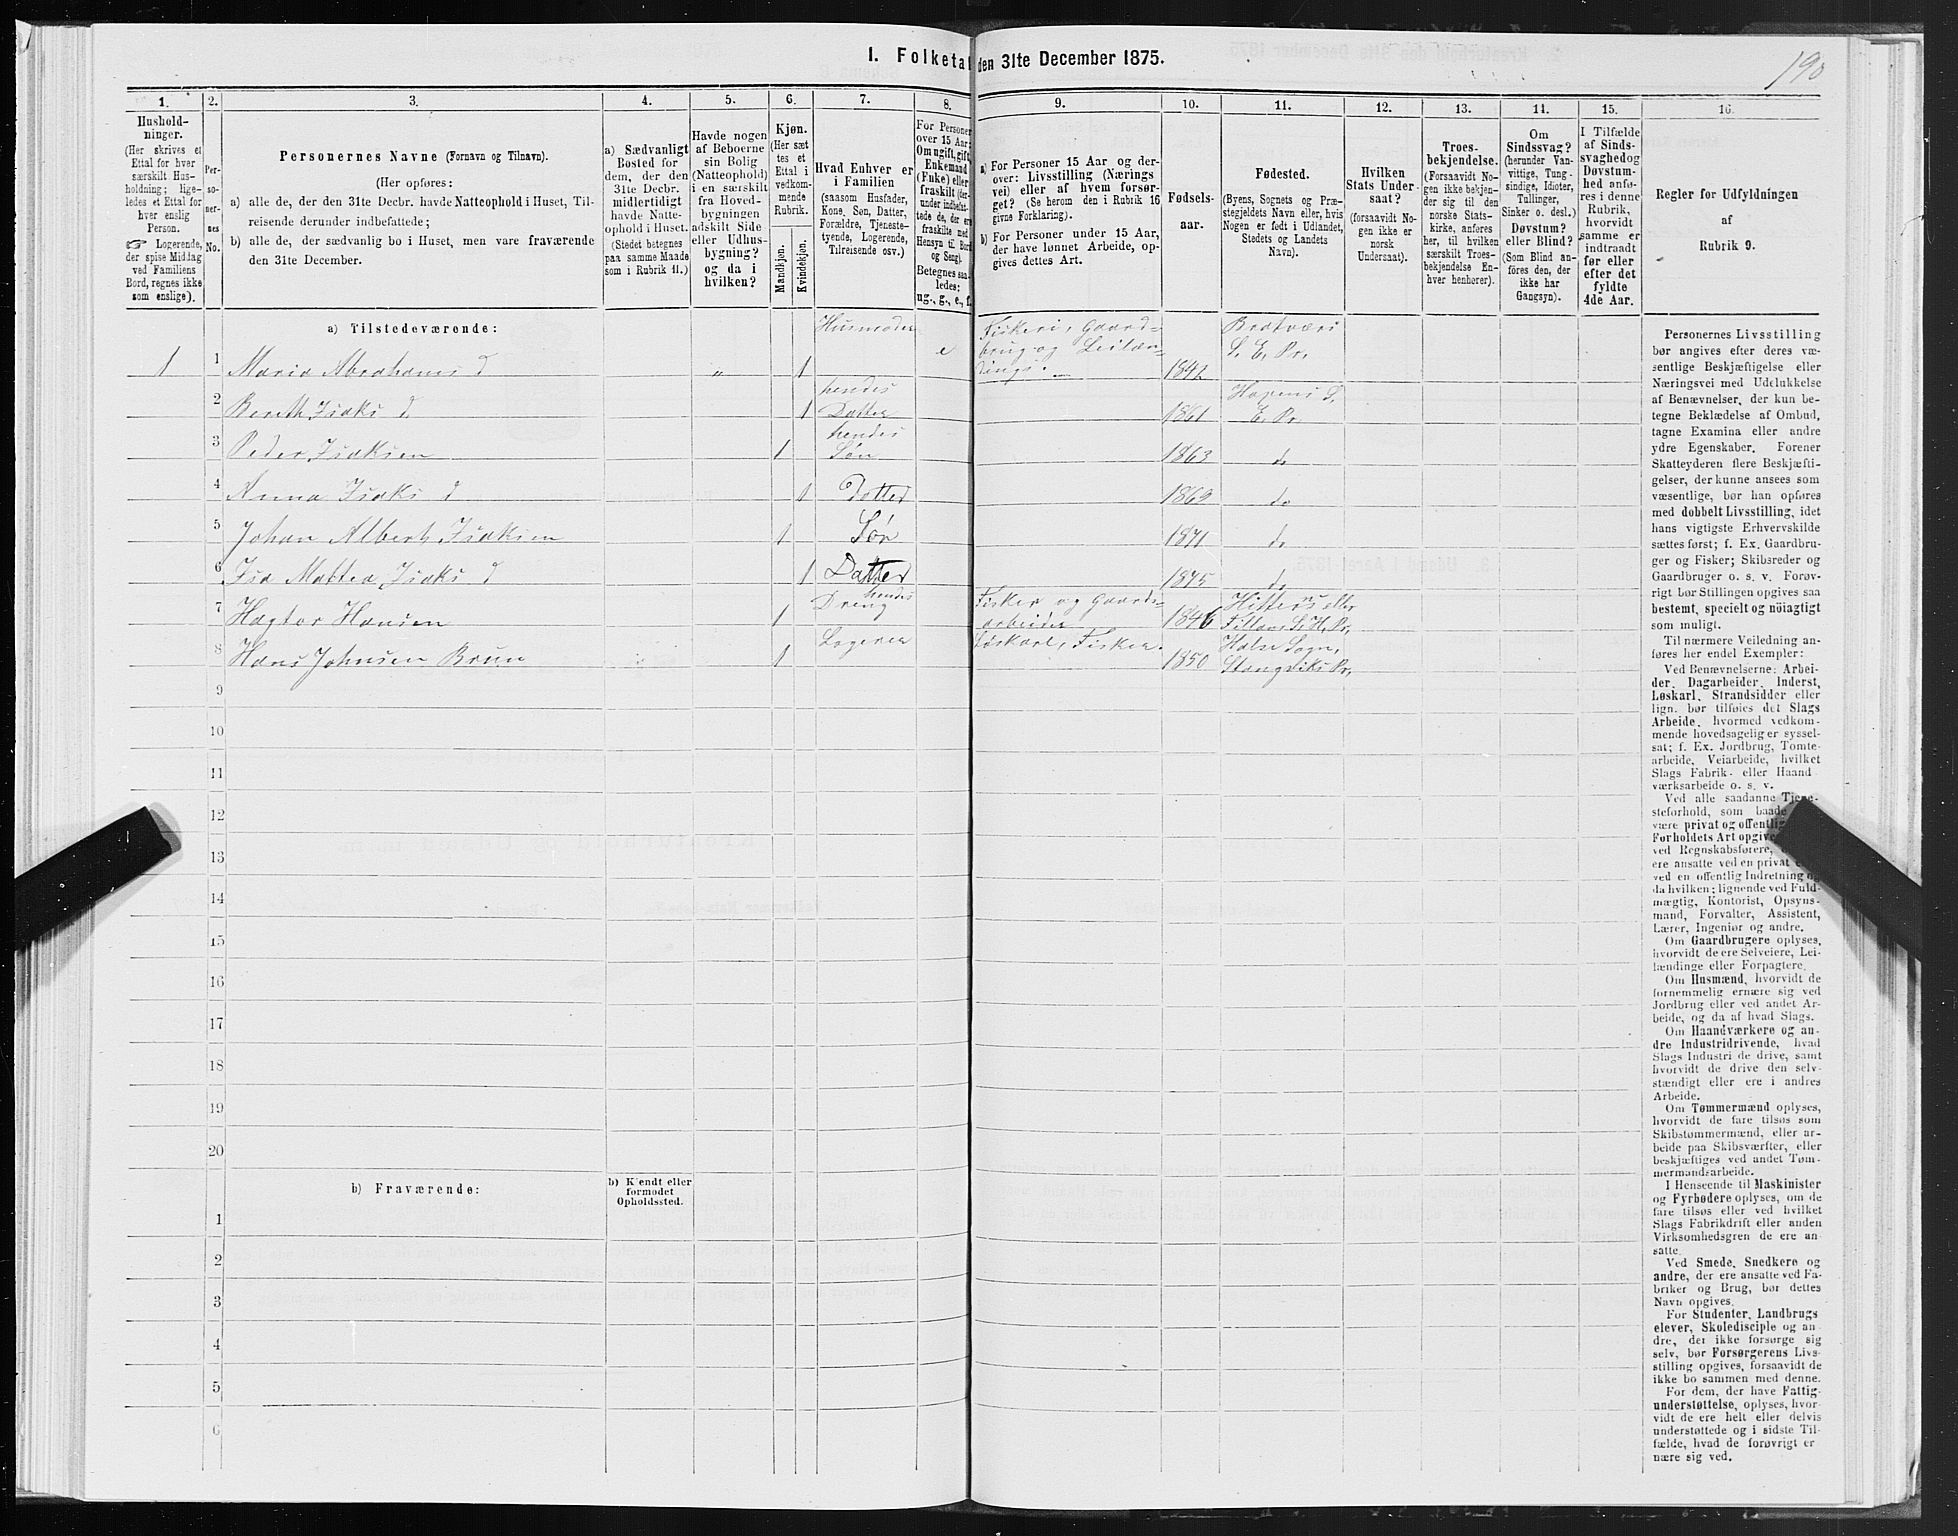 190
I. Folketal den 31te December 1875.
1.
Hushold-
ninger.
(Her skrives et
Ettal for hver
særskilt Hus-
holdning; lige-
ledes et Ettal for
hver enslig
Person.
☞ Logerende,
der spise Middag
ved Familiens
Bord, regnes ikke
som enslige).
2.
Per-
so-
ner-
nes
No.
3.
Personernes Navne (Fornavn og Tilnavn).
(Her opføres:
a) alle de, der den 31te Decbr. havde Natteophold i Huset, Til-
reisende derunder indbefattede;
b) alle de, der sædvanlig bo i Huset, men vare fraværende
den 31te December.
4.
a) Sædvanligt
Bosted for
dem, der den
31te Decbr.
midlertidigt
havde Natte-
ophold i Huset.
(Stedet betegnes
paa samme Maade
som i Rubrik 11.)
5.
Havde nogen
af Beboerne
sin Bolig
(Natteophold)
i en særskilt
fra Hoved-
bygningen
adskilt Side
eller Udhus-
bygning?
og da i
hvilken?
6.
Kjøn.
(Her sæt
tes et
Ettal i
vedkom-
mende
Rubrik.
Mandkjøn.
Kvindekjøn.
7.
Hvad Enhver er
i Familien
(saasom Husfader,
Kone, Søn, Datter,
Forældre, Tjeneste-
tyende, Logerende,
Tilreisende osv.)
8.
For Personer
over 15 Aar:
Om ugift, gift,
Enkemand
(Enke) eller
fraskilt (der-
under indbefat-
tede de, der ere
fraskilte med
Hensyn til Bord
og Seng).
Betegnes saa-
ledes:
ug., g., e., f.
9.
a) For Personer 15 Aar og der-
over: Livsstilling (Nærings
vei) eller af hvem forsør-
get? (Se herom den i Rubrik 16
givne Forklaring).
b) For Personer under 15 Aar,
der have lønnet Arbeide, op-
gives dettes Art.
10.
Fødsels-
aar.
11.
Fødested.
(Byens, Sognets og Præ-
stegjeldets Navn eller, hvis
Nogen er født i Udlandet,
Stedets og Landets
Navn).
12.
Hvilken
Stats Under-
saat?
(forsaavidt No-
gen ikke er
norsk
Undersaat).
13.
Troes-
bekjendelse.
(Forsaavidt No-
gen ikke bekjen-
der sig til den
norske Stats-
kirke, anføres
her, til hvilken
særskilt Troes-
bekjendelse En-
hver henhører).
14.
Om
Sindssvag?
(herunder Van-
vittige, Tung-
sindige, Idioter,
Tullinger,
Sinker o. desl.)
Døvstum?
eller Blind?
(Som Blind an-
føres den, der
ikke har
Gangsyn).
15.
I Tilfælde
af Sinds-
svaghed og
Døvstum-
hed anfø-
res i denne
Rubrik,
hvorvidt
samme er
indtraadt
før eller
efter det
fyldte
4de Aar.
16.
Regler for Udfyldningen
af
Rubrik 9.
a) Tilstedeværende:
1 1 Maria Abrahams d „ 1 Husmoder e Fiskeri, Gaard-
brug og Leilæn-
dings. 1842 Bratvær
S. E. Pr.
2 Bereth Isaks d 1 hendes
Datter 1861 Hopens S.
E. Pr.
3 Peder Isaksen 1 hendes
Søn 1863 do
4 Anna Isaks d 1 Datter 1869 do
5 Johan Albert Isaksen 1 Søn 1871 do
6 Isa Mattea Isaks d 1 Datter 1875 do
7 Hagtor Hansen 1 hendes
Dreng Fisker og Gaards-
arbeider 1846 Hitterns eller
Fillans S. H. Pr.
8 Hans Johnsen Brun 1 Logerer Løskarl, Fisker. 1850 Halse Sogn,
Stangviks Pr.
9
10
11
12
13
14
15
16
17
18
19
20
b) Fraværende:
b) Kjendt eller
formodet
Opholdssted.
1
2
3
4
5
6
Personernes Livsstilling
bør angives efter deres væ-
sentlige Beskjæftigelse eller
Næringsvei med Udelukkelse
af Benævnelser, der kun be-
tegne Beklædelse af Ombud,
tagne Examina eller andre
ydre Egenskaber. Forener
Skatteyderen flere Beskjæfti-
gelser, der kunne ansees som
væsentlige, bør han opføres
med dobbelt Livsstilling, idet
hans vigtigste Erhvervskilde
sættes først; f. Ex. Gaardbru-
ger og Fisker; Skibsreder og
Gaardbruger o. s. v. Forøv-
rigt bør Stillingen opgives saa
bestemt, specielt og nöiagtigt
som muligt.
Til nærmere Veiledning an-
føres her endel Exempler:
Ved Benævnelserne: Arbei-
der, Dagarbeider, Inderst,
Løskarl, Strandsidder eller
lign. bør tilføies det Slags
Arbeide, hvormed vedkom-
mende hovedsagelig er syssel-
sat; f. Ex. Jordbrug, Tomte-
arbeide, Veiarbeide, hvilket
Slags Fabrik- eller Haand
værksarbeide o. s. v.
Ved alle saadanne Tjene-
steforhold, som baade
være privat og offentlig
Forholdets Art opgives
ved Regnskabsførere,
ere ansatte ved en privat
ved en offentlig Indretning og
da hvilken; lignende ved Fuld-
mægtig, Kontorist, Opsyns-
mand, Forvalter, Assistent,
Lærer, Ingeniør og andre.
Om Gaardbrugere oplyses,
hvorvidt de ere Selveiere, Lei-
lændinge eller Forpagtere.
Om Husmænd, hvorvidt de
fornemmelig ernære sig ved
Jordbrug eller ved andet Ar-
beide, og da af hvad Slags.
Om Haandværkere og an-
dre Industridrivende, hvad
Slags Industri de drive, samt
hvorvidt de drive den selv-
stændigt eller ere i andres
Arbeide.
Om Tømmermænd oplyses,
hvorvidt de fare tilsøs som
Skibstømmermænd, eller ar-
beide paa Skibsværfter, eller
beskjæftiges ved andet Tøm-
mermandsarbeide.
I Henseende til Maskinister
og Fyrbødere oplyses, om de
fare tilsøs eller ved hvilket
Slags Fabrikdrift eller anden
Virksomhedsgren de ere an-
satte.
Ved Smede, Snedkere og
andre, der ere ansatte ved Fa-
briker og Brug, bør dettes
Navn opgives.
For Studenter, Landbrugs
elever, Skoledisciple og an-
dre, der ikke forsørge sig
selv, bør Forsørgerens Livs-
stilling opgives, forsaavidt de
ikke bo sammen med denne.
For dem, der have Fattig-
understøttelse, oplyses, hvor-
vidt de ere helt eller delvis
understøttede og i sidste Til-
fælde, hvad de forøvrigt er
nære sig ved.